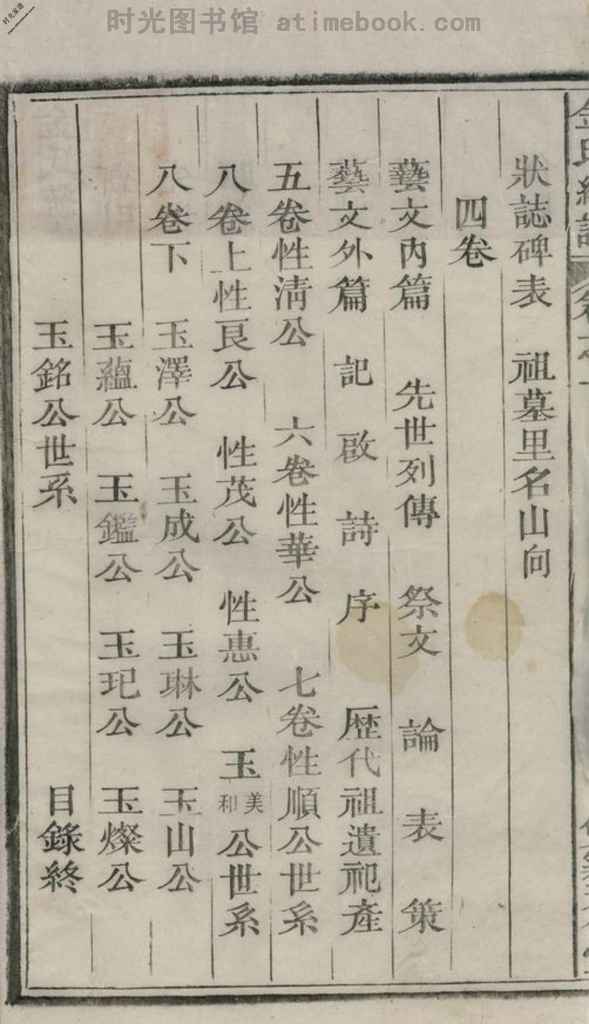 时光图书馆 atimebook.com
狀誌碑表 祖墓里名山向
四卷
藝文內篇 先世列傳 祭文 論 表 策
藝文外篇 記 啟 詩 序 歷代祖遺祀產
五卷性淸公 六卷性華公 七卷性順公世系
八卷上性良公 性茂公 性惠公 玉美和公世系
八卷下 玉澤公 玉成公 玉琳公 玉山公
玉蘊公 玉鑑公 玉玘公 玉燦公
玉銘公世系 目錄終